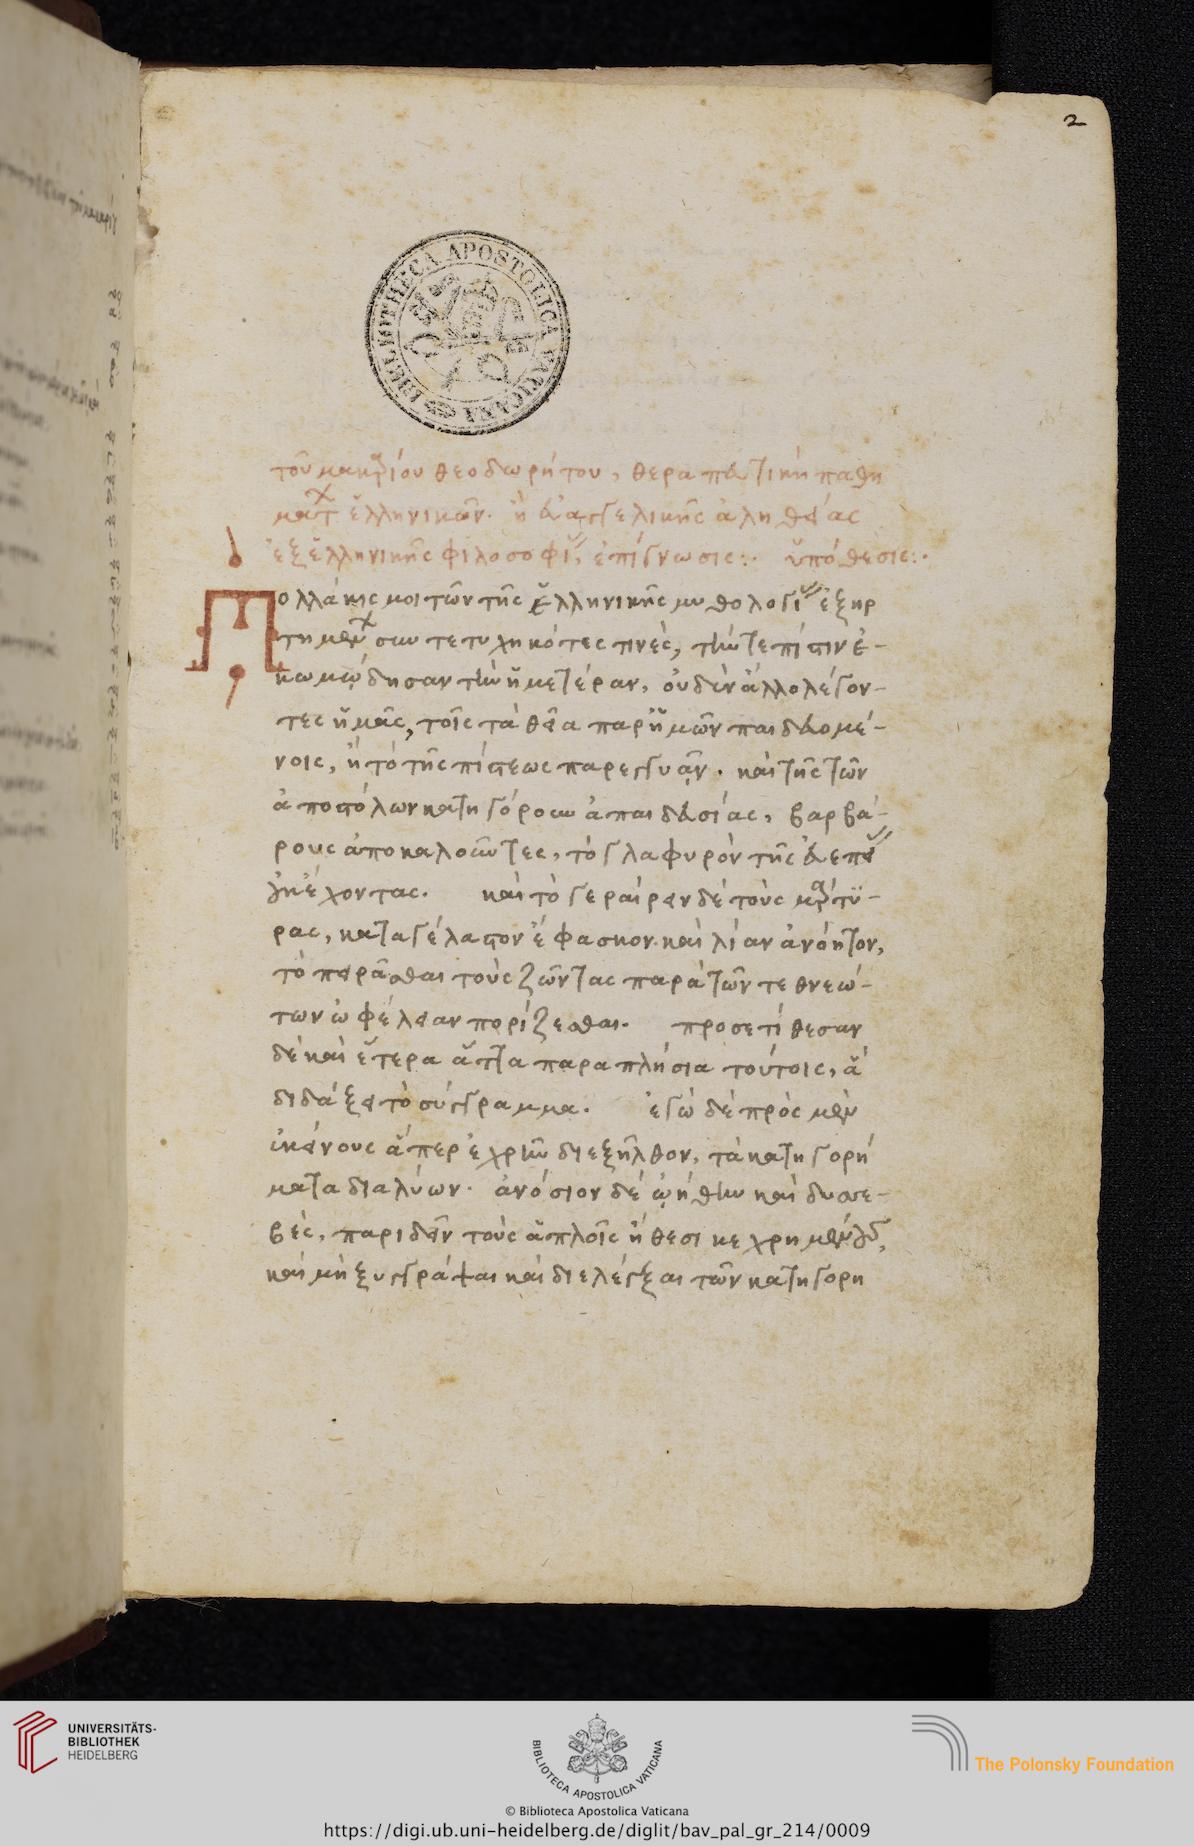 2
BIBLIOTHECA APOSTOLICA VATICANA
τοῦ μακαρίου θεοδωρήτου, θεραπευτικὴ παθη
μάτ ἑλληνικῶν. ἢ εὐαγγελικῆς ἀληθείας
ἐξ ἑλληνικῆς φιλοσοφί, ἐπίγνωσις:. ὑπόθεσις:.
Πολλάκις μοι τῶν τῆς ἑλληνικῆς μυθολογί ἐξηρ
τημέν συντετυχηκότες τινὲς, τήν τε πίστιν ἐ-
κωμῴδησαν τὴν ἡμετέραν, οὐδὲν ἄλλο λέγον-
τες ἡμᾶς, τοῖς τὰ θεῖα παρ' ἡμῶν παιδευομέ-
νοις, ἢ τὸ τῆς πίστεως παρεγγυᾶν. καὶ τῆς τῶν
ἀποστόλων κατηγόρουν ἀπαιδευσίας, βαρβά-
ρους ἀποκαλοῦντες, τὸ γλαφυρὸν τῆς εὐεπεί
μὴ ἔχοντας. καὶ τὸ γεραίρειν δὲ τοὺς μάρτυ-
ρας, καταγέλαστον ἔφασκον. καὶ λίαν ἀνόητον,
τὸ πειρᾶσθαι τοὺς ζῶντας παρὰ τῶν τεθνεώ-
των ὠφέλειαν πορίζεσθαι. προσετίθεσαν
δὲ καὶ ἕτερα ἄττα παραπλήσια τούτοις, ἃ
διδάξει τὸ σύγγραμμα. ἐγὼ δὲ πρὸς μὲν
ἐκείνους ἅπερ ἐχρῆν διεξῆλθον, τὰ κατηγορή
ματα διαλύων. ἀνόσιον δὲ ᾠήθην καὶ δυσσε-
βὲς, παριδεῖν τοὺς ἁπλοῖς ἤθεσι κεχρημένους,
καὶ μὴ ξυγγράψαι καὶ διελέγξαι τῶν κατηγορη
UNIVERSITÄTS-
BIBLIOTHEK
HEIDELBERG
BIBLIOTECA APOSTOLICA VATICANA
© Biblioteca Apostolica Vaticana
The Polonsky Foundation
https://digi.ub.uni-heidelberg.de/diglit/bav_pal_gr_214/0009